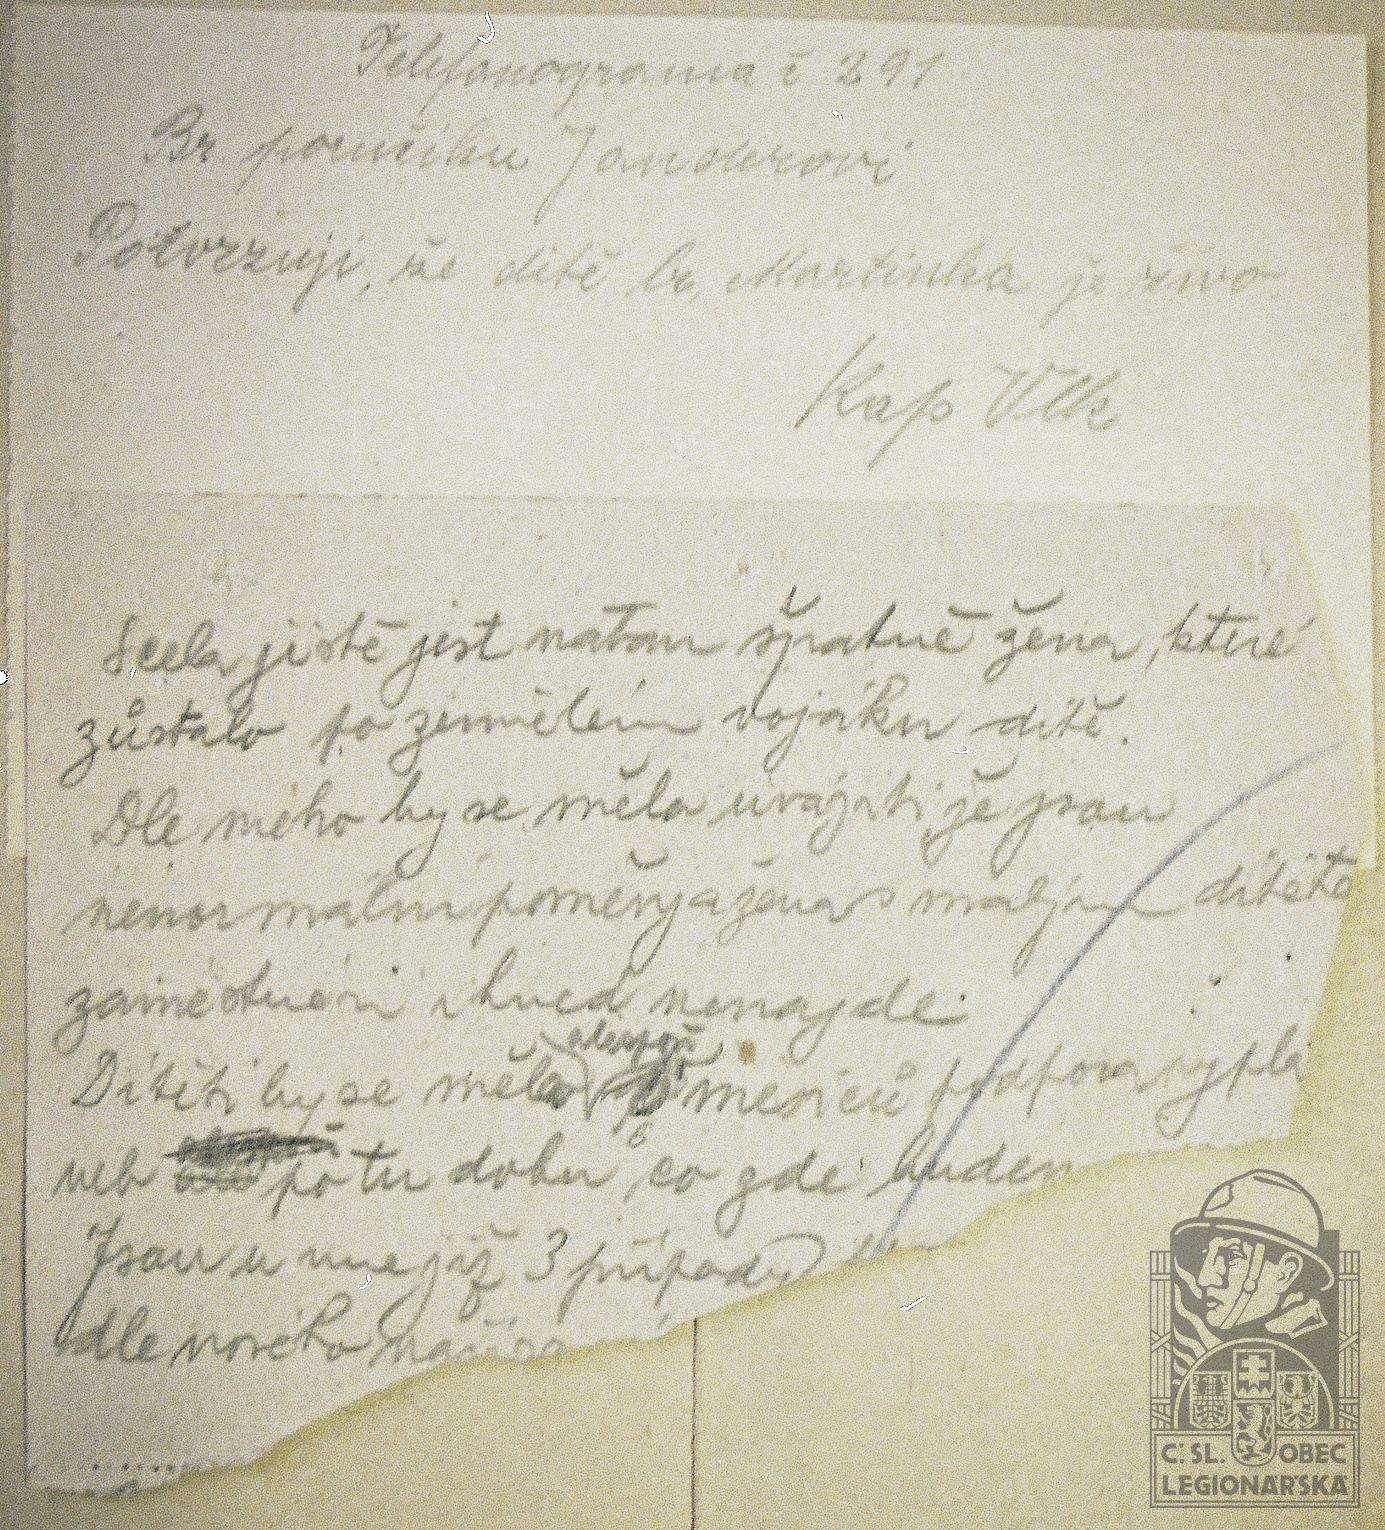 Telefonograma č 291
Br. poručíku Janderovi
Potvrzuji, že dítě br. Martinka je živo.
Kap Vlk
Scela jistě jest natom špatně žena, které
zůstalo po zemřelém vojáku dítě.
Dle mého by se měla uvážiti, že jsou
nenormální poměry a žena s malým dítěte
zaměstnání ihned nenajde.
alespoň
Dítěti by se měla 6 měsíců podpora vyplá
neb po tu dobu, co zde budem
Jsou u mne již 3 případy
dle nového naříze
Č. SL. OBEC
LEGIONÁŘSKÁ